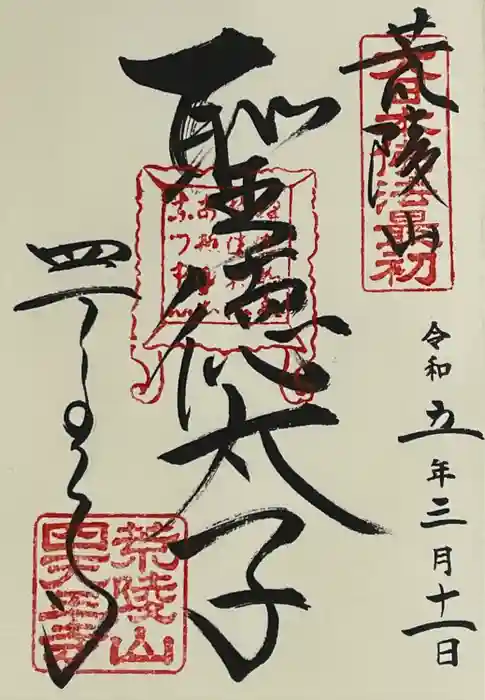 荒陵山
大日本佛法最初
聖徳太子
四天王寺
荒陵山
四天王寺
令和五年三月十一日